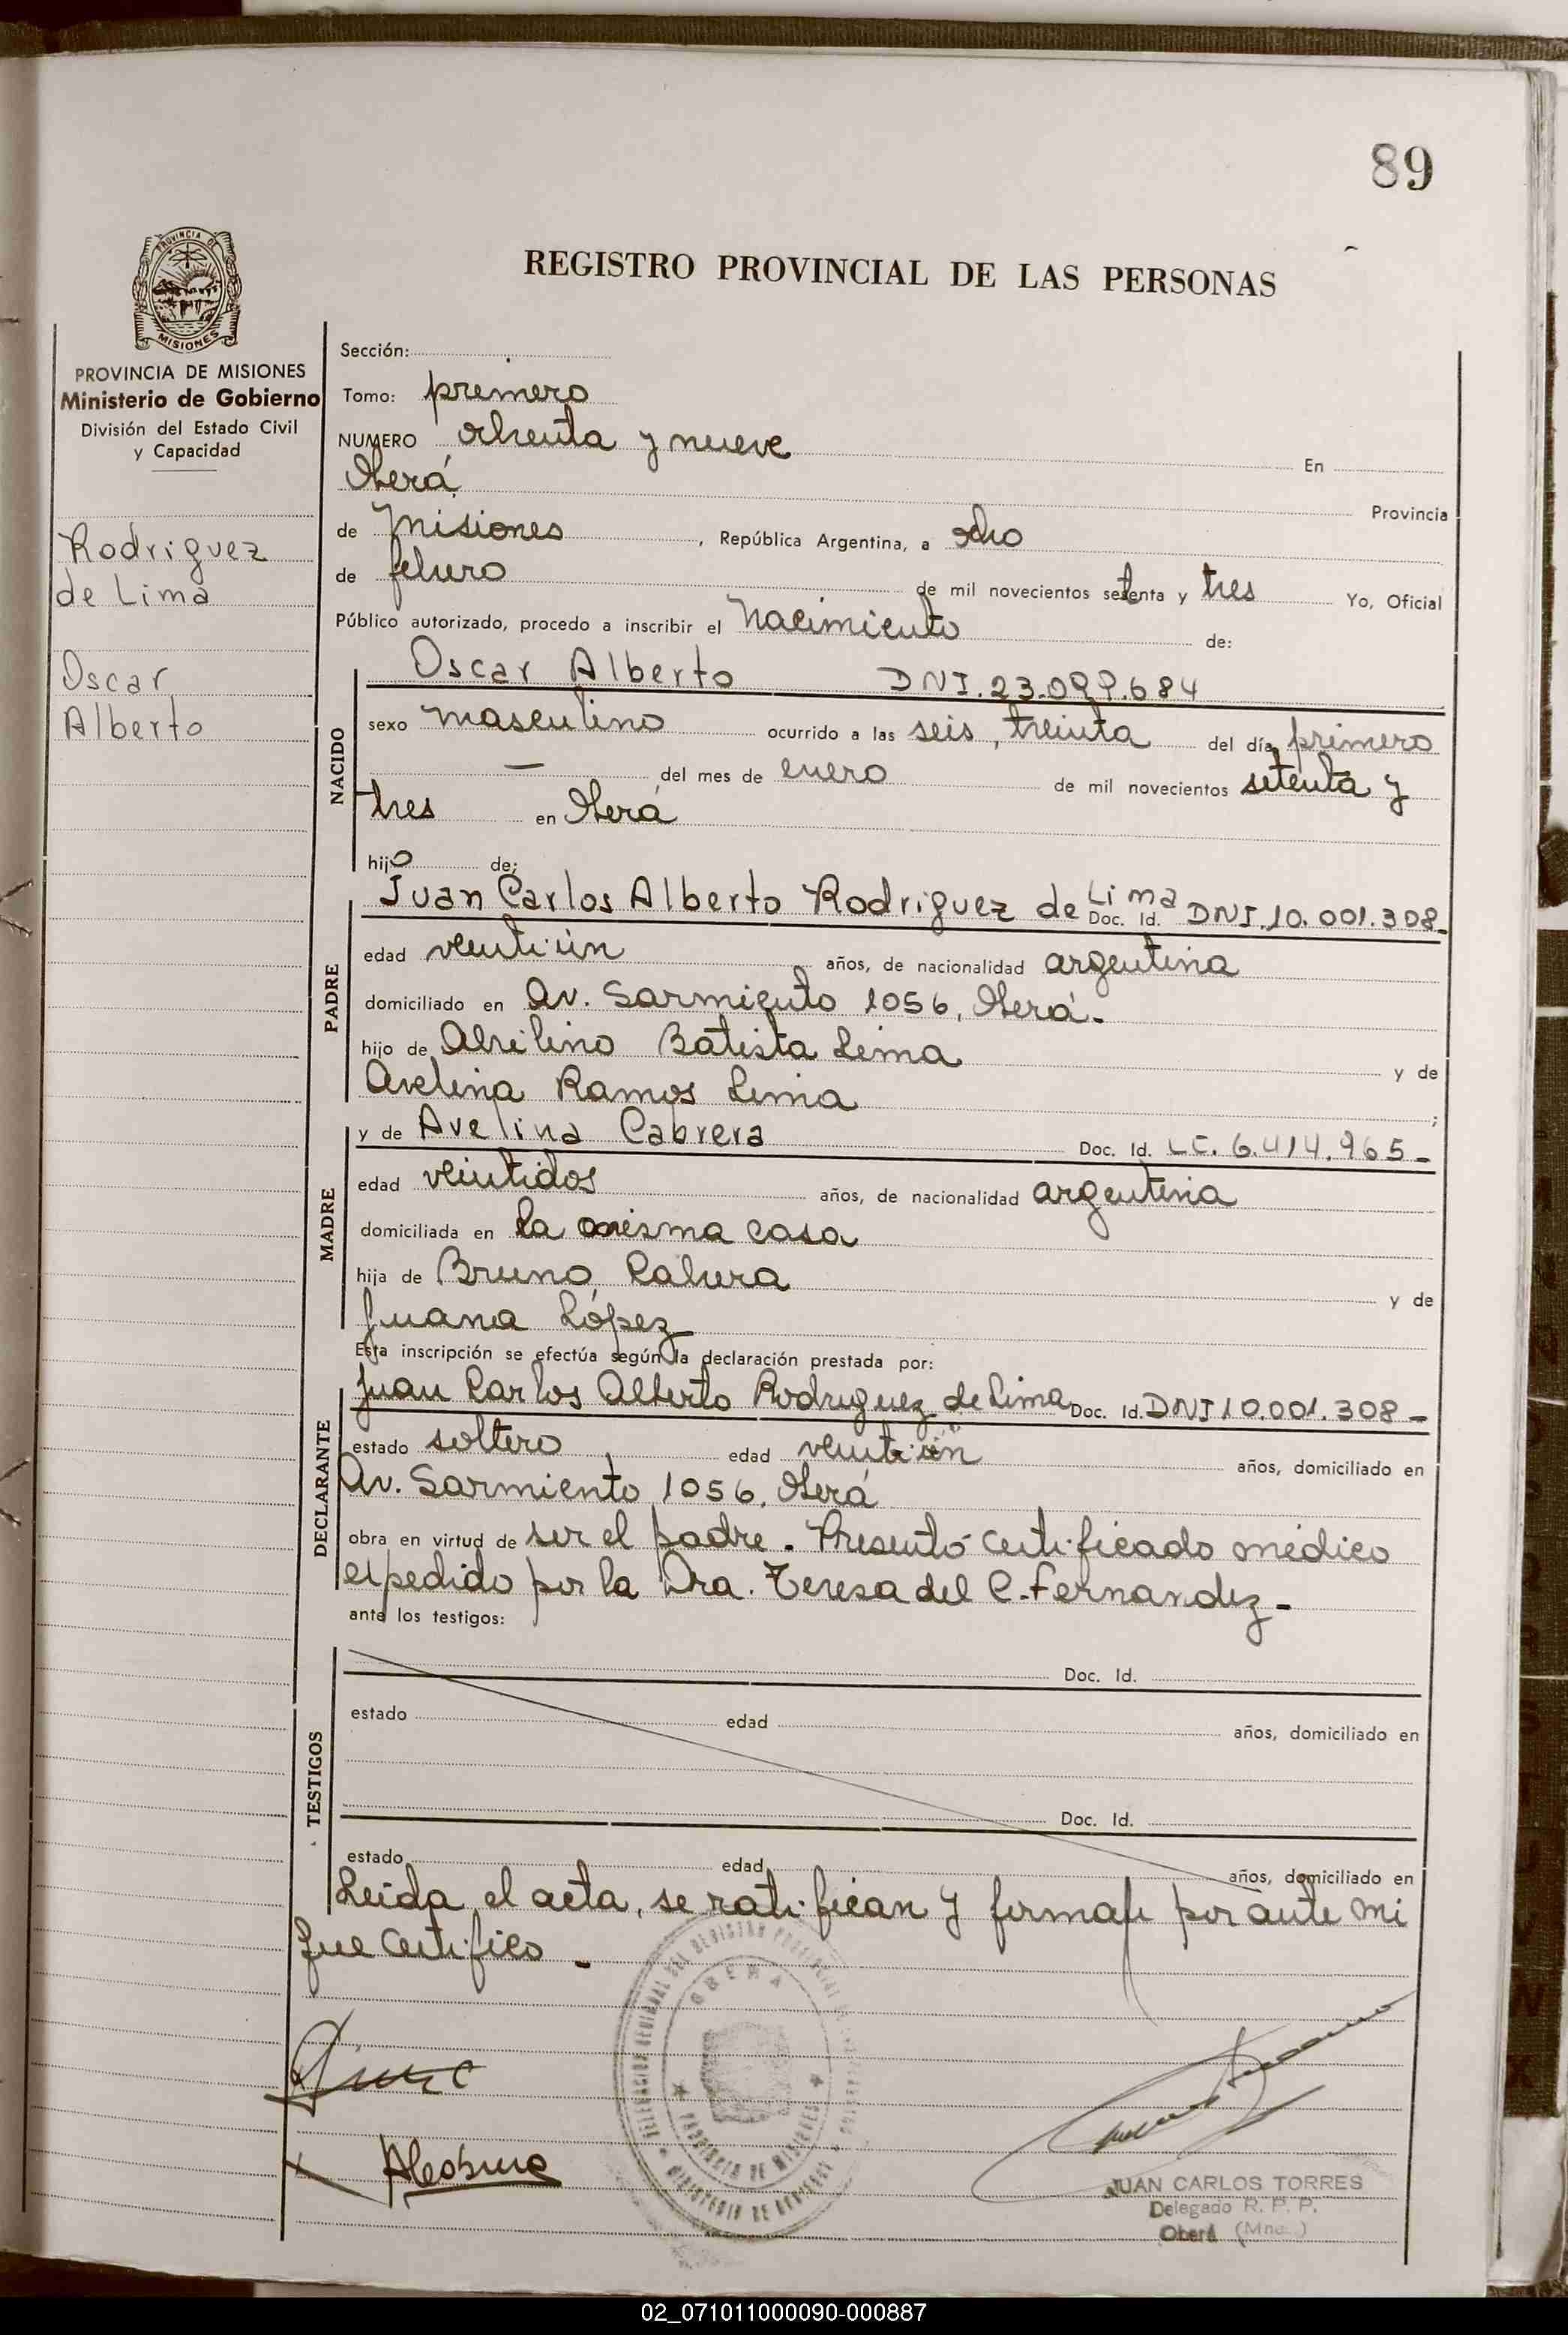 89
REGISTRO PROVINCIAL DE LAS PERSONAS
PROVINCIA DE MISIONES
PROVINCIA DE MISIONES
Ministerio de Gobierno
División del Estado Civil
y Capacidad
Rodriguez
de Lima
Oscar
Alberto
Sección:
Tomo: primero
NUMERO ochenta y nueve En
Oberá Provincia
de Misiones, República Argentina, a ocho
de febrero de mil novecientos setenta y tres Yo, Oficial
Público autorizado, procedo a inscribir el Nacimiento de:
Oscar Alberto DNI.23.099.684
NACIDO
sexo masculino ocurrido a las seis, treinta del día primero
— del mes de enero de mil novecientos setenta y
tres en Oberá
hijo de:
Juan Carlos Alberto Rodriguez de Lima Doc. Id. DNI.10.001.308-
PADRE
edad veinti·ún años, de nacionalidad argentina
domiciliado en Av. Sarmiento 1056, Oberá.-
hijo de Abrilino Batista Lima y de
Avelina Ramos Lima ;
y de Avelina Cabrera Doc. Id. LC. 6.414.965-
MADRE
edad veintidos años, de nacionalidad argentina
domiciliada en la misma casa
hija de Bruno Cabrera y de
Juana López
Esta inscripción se efectúa según la declaración prestada por:
Juan Carlos Alberto Rodriguez de Lima Doc. Id. DNI 10.001.308-
DECLARANTE
estado soltero edad veinti·ún años, domiciliado en
Av. Sarmiento 1056, Oberá
obra en virtud de ser el padre. Presentó certificado médico
expedido por la Dra. Teresa del C. Fernandez-
ante los testigos:
Doc. Id.
TESTIGOS
estado edad años, domiciliado en
Doc. Id.
estado edad años, domiciliado en
Leida el acta, se ratifican y firman por ante mi
que certifico -
OBERA
PROVINCIA DE MISIONES
JUAN CARLOS TORRES
Delegado R. P. P.
Oberá (Mnes.)
02_071011000090-000887